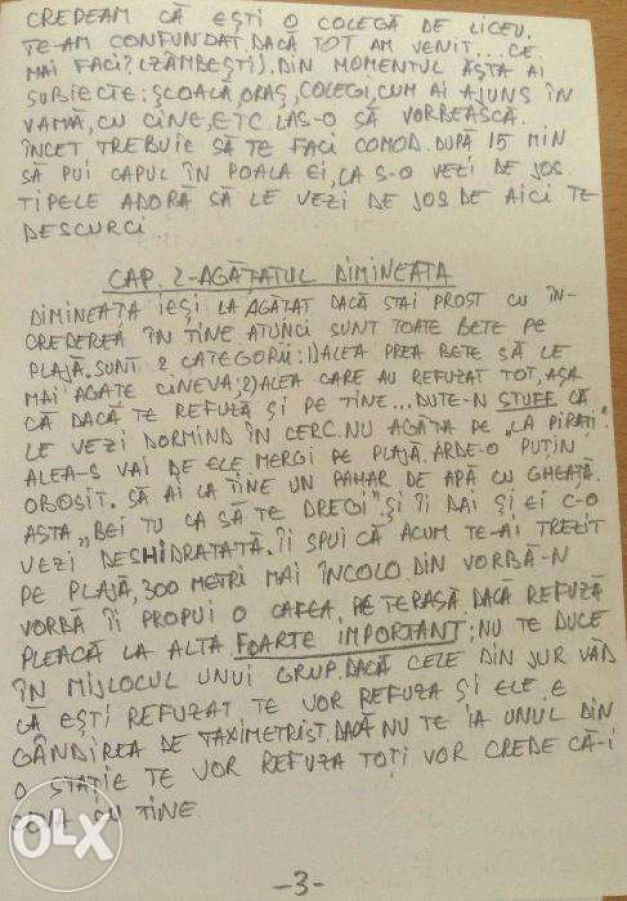 CREDEAM CĂ EȘTI O COLEGĂ DE LICEU.
TE-AM CONFUNDAT.DACĂ TOT AM VENIT... CE
MAI FACI?(ZÂMBEȘTI).DIN MOMENTUL ĂSTA AI
SUBIECTE:ȘCOALĂ,ORAȘ,COLEGI,CUM AI AJUNS ÎN
VAMĂ,CU CINE,ETC.LAS-O SĂ VORBEASCĂ.
ÎNCET TREBUIE SĂ TE FACI COMOD.DUPĂ 15 MIN
SĂ PUI CAPUL ÎN POALA EI,CA S-O VEZI DE JOS.
TIPELE ADORĂ SĂ LE VEZI DE JOS DE AICI TE
DESCURCI.
CAP. 2-AGĂȚATUL DIMINEAȚA
DIMINEAȚA IEȘI LA AGĂȚAT DACĂ STAI PROST CU ÎN-
CREDEREA ÎN TINE ATUNCI SUNT TOATE BETE PE
PLAJĂ.SUNT 2 CATEGORII:1)ALEA PREA BETE SĂ LE
MAI AGATE CINEVA;2)ALEA CARE AU REFUZAT TOT,AȘA
CĂ DACĂ TE REFUZĂ ȘI PE TINE...DUTE-N STUFF CĂ
LE VEZI DORMIND ÎN CERC.NU AGĂȚA PE „LA PIRAȚI".
ALEA-S VAI DE ELE MERGI PE PLAJĂ.ARDE-O PUȚIN
OBOSIT. SĂ AI LA TINE UN PAHAR DE APĂ CU GHEAȚĂ.
ASTA „BEI TU CA SĂ TE DREGI",ȘI ÎI DAI ȘI EI C-O
VEZI DESHIDRATATĂ.ÎI SPUI CĂ ACUM TE-AI TREZIT
PE PLAJĂ,300 METRI MAI ÎNCOLO.DIN VORBĂ-N
VORBĂ ÎI PROPUI O CAFEA, PE TERASĂ.DACĂ REFUZĂ
PLEACĂ LA ALTA FOARTE IMPORTANT:NU TE DUCE
ÎN MIJLOCUL UNUI GRUP.DACĂ CELE DIN JUR VĂD
CĂ EȘTI REFUZAT TE VOR REFUZA ȘI ELE.E
GÂNDIREA DE TAXIMETRIST.DACĂ NU TE IA UNUL DIN
O STAȚIE TE VOR REFUZA TOȚI VOR CREDE CĂ-I
CEVA CU TINE
OLX
-3-